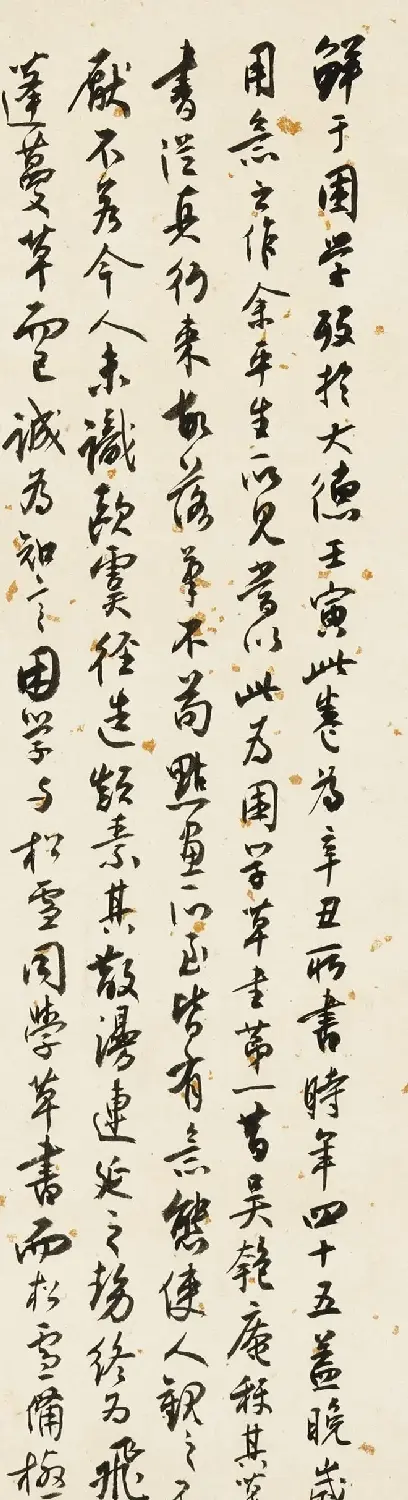 鲜于困学殁于大德壬寅此卷为辛丑所书时年四十五盖晚岁
用意之作余平生所见当以此为困学草书第一昔吴匏庵称其草
书从真行来故落笔不苟点画所至皆有意态使人观之不
厌不若今人未识欧虞径造颠素其散漫连延之势终为飞
蓬蔓草而已诚为知言困学与松雪同学草书而松雪备极